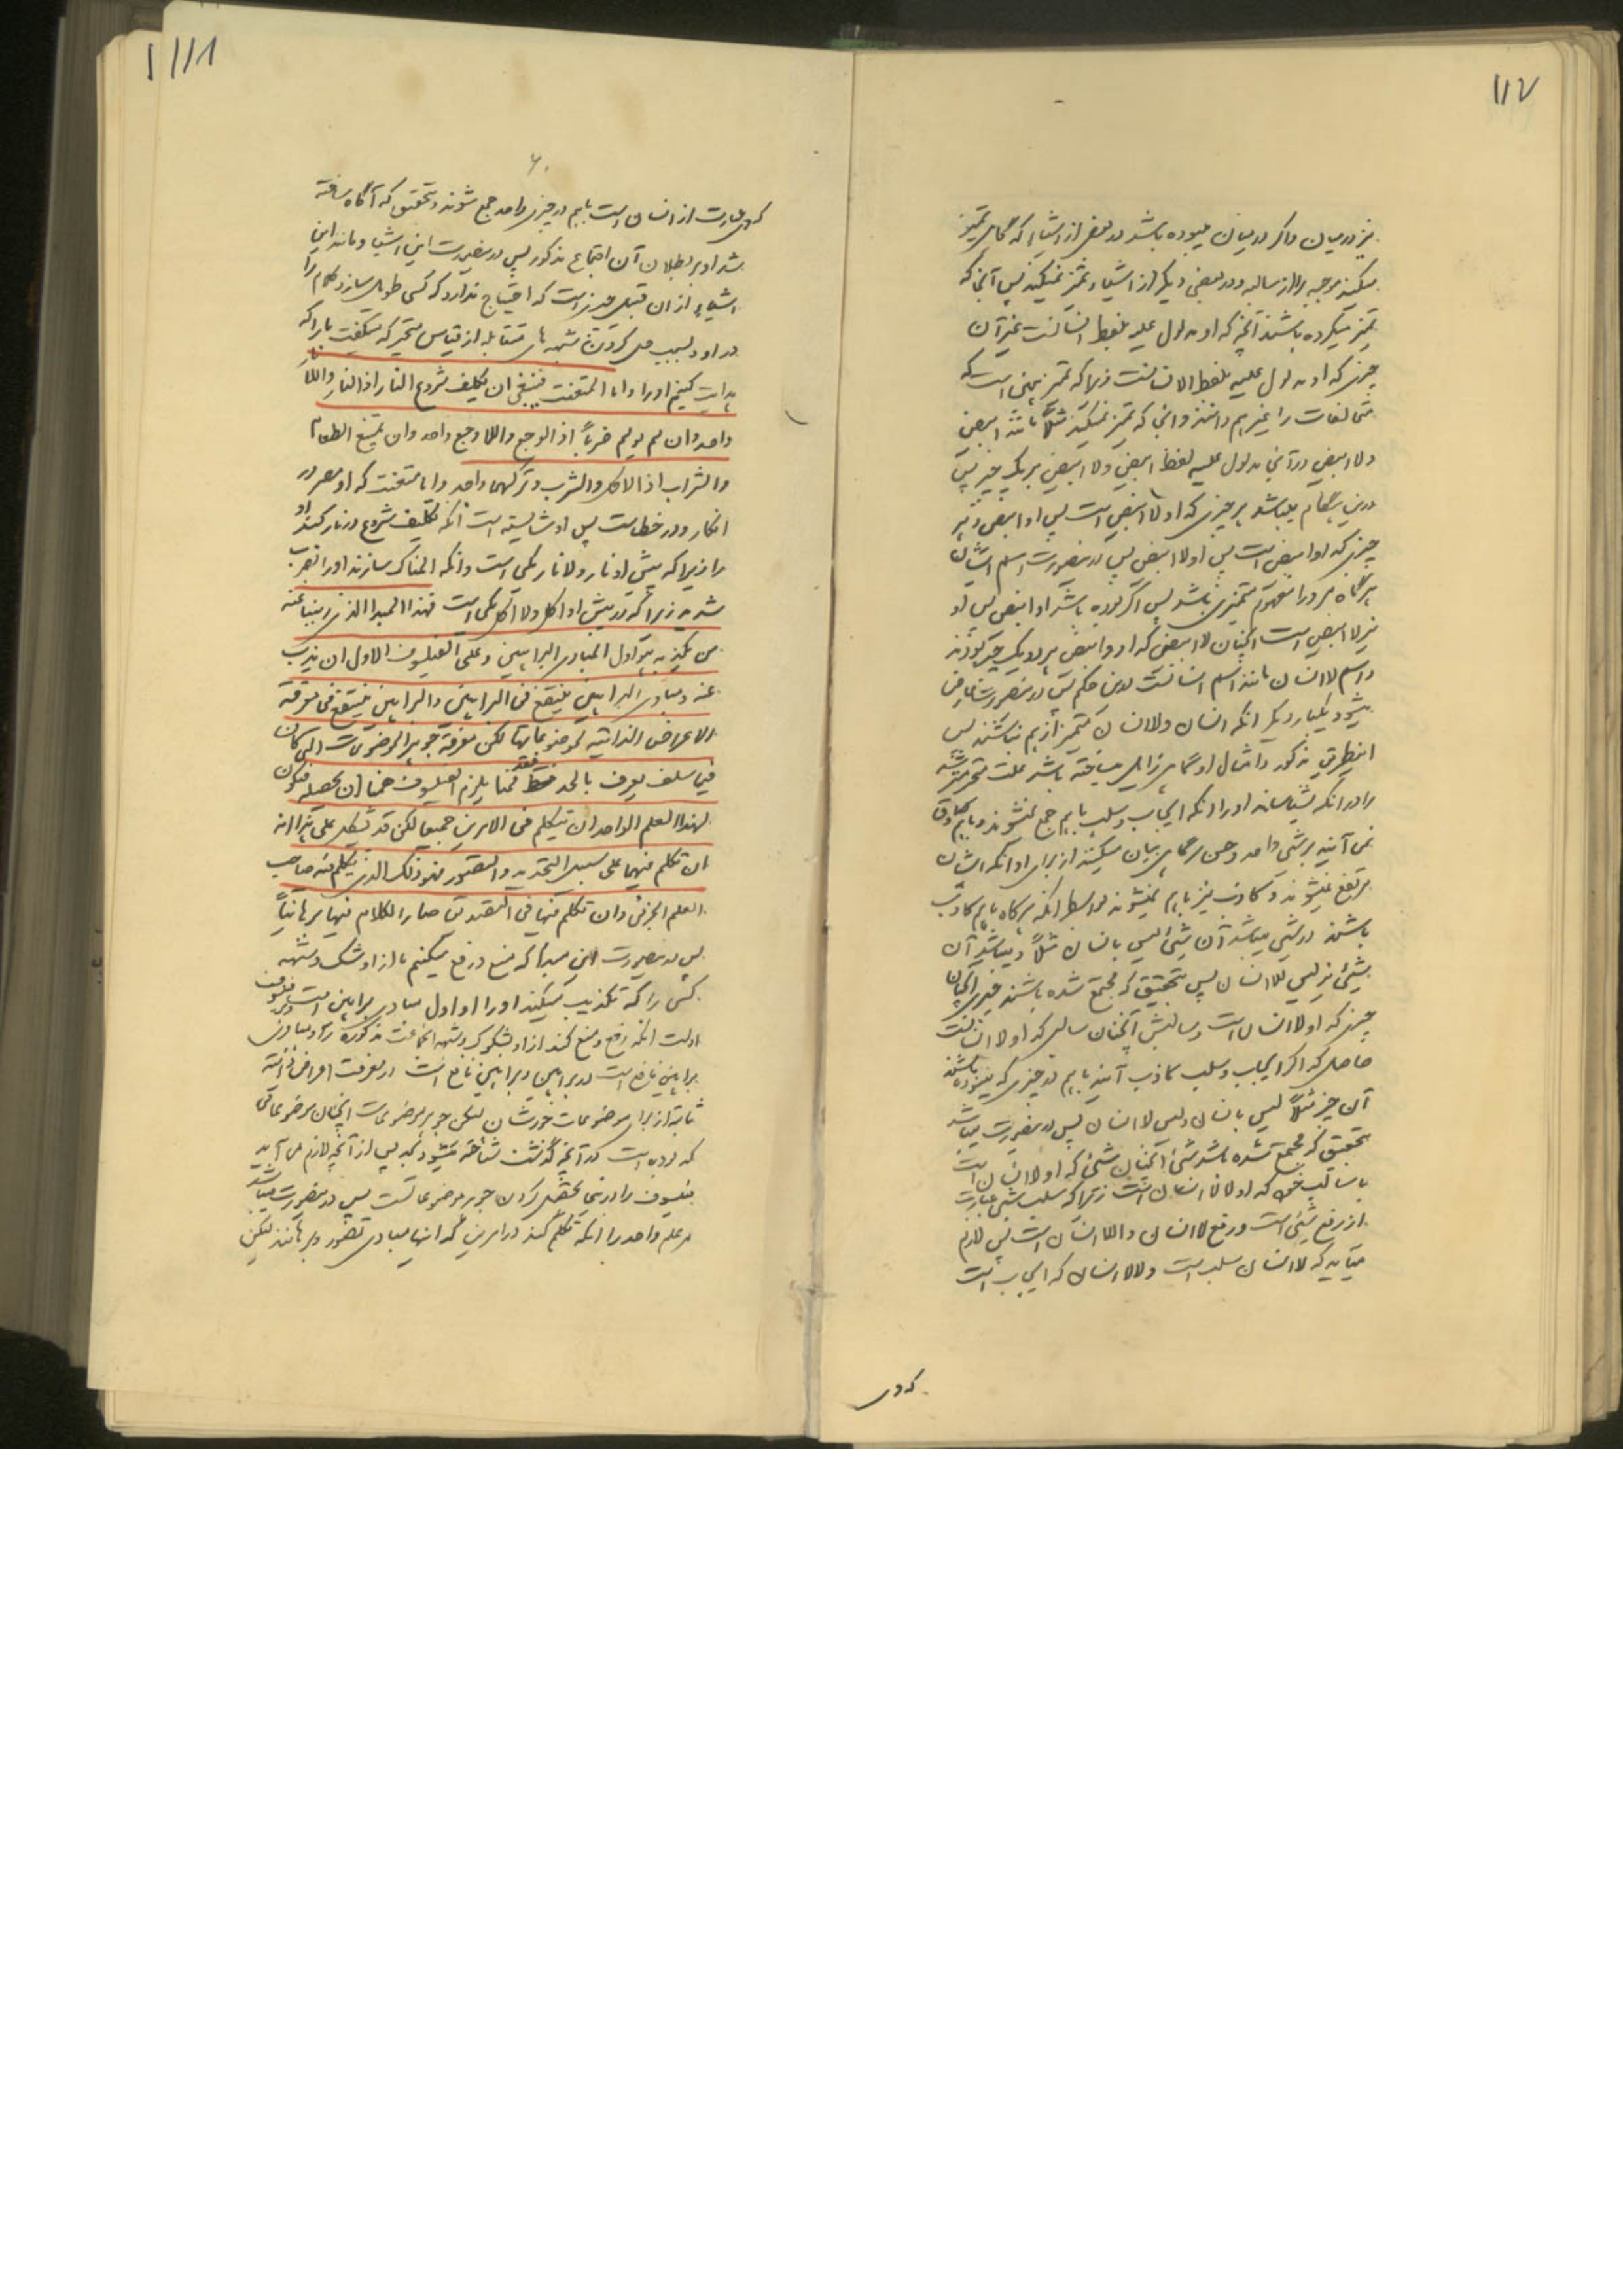 ۱۱۷
نیز در میان و اگر در میان نبوده باشد در بعض از اشیاء که گاهی تمیز
میکند موجبه را از سالبه و در بعضی دیگر از اشیاء تمیز نمیکند پس آنجا که
تمیز میکرده باشند آنچه که او مدلول علیه بلفظ انسانست غیر آن
چیزی که او مدلول علیه بلفظ الانسانست زیرا که تمیز
متخالفات را غیر هم دانند و آنجا که تمیز نمیکند مثلاً مانند ابیض
و لا ابیض در آنجا مدلول علیه لفظ ابیض و لا ابیض هر یک چیز پس
درین هنگام میباشد هر چیزی که او لا ابیض است پس او ابیض و هر
چیزی که او ابیض است پس او لا ابیض پس درینصورت اسم انسان
هرگاه مر او را مفهوم متمیزی باشد پس اگر بوده باشد او ابیض پس او
نیز لا ابیض است آنچنان لا ابیض که او و ابیض هر دو یک چیز بودند
و اسم لا انسان مانند اسم انسانست درین حکم پس درینصورت
میشود یکبار دیگر آنکه انسان و لا انسان متمیز از هم نباشند پس
اینطریق مذکور و امثال او گاهی زایل میساخته باشد علت متحیر
را در آنکه بشناساند او را آنکه ایجاب و سلب باهم جمع نشوند و باهم صادق
نمی آیند بر شیء واحد و همین گاهی بیان میکنند از برای او آنکه ایشان
مرتفع نمیشوند و کاذب نیز باهم نمیشوند بواسطه آنکه هرگاه باهم کاذب
باشند در شیء میباشد آن شیء لیس بانسان مثلاً و میباشد آن
شیء نیز لیس بلا انسان پس بتحقیق که مجتمع شده باشند
چیزی که او لا انسان است و سالبش آنچنان سالبی که او لا لا انسانست
حاصل که اگر ایجاب و سلب کاذب آیند باهم در چیزی که بوده باشد
آن چیز مثلاً لیس بانسان و لیس لا انسان پس درینصورت میباشد
بتحقیق که مجتمع شده باشد شیء آنچنان شیء که او لا انسان است
با سالب خود که او لا لا انسان است زیرا که سلب شیء عبارت
از رفع شیء است و رفع لا انسان و لا لا انسان است پس لازم
میآید که لا انسان سلب است و لا لا انسان که ایجاب است
که وی
۱۱۸
که وی عبارت از انسان است باهم در چیزی واحد جمع شوند و بتحقیق که آگاه ساخته
شد او بر بطلان آن اجتماع مذکور پس درینصورت این اشیاء و مانند این
اشیاء از آن قبیل چیز است که احتیاج ندارد که کسی طویل سازد کلام را
در او و بسبب حل کردن شبهه های متقابله از قیاس متحیر که میگفت ما را که
هدایت کنیم او را و اما المتعنت فینبغی ان یکلف شروع النار اذ النار و اللانار
واحد و ان لم یولم ضرباً اذ الوجع و اللاوجع واحد و ان یمنع الطعام
و الشراب اذ الاکل و الشرب و ترکهما واحد و اما متعنت که او مصر در
انکار و در خطاست پس او شایسته است آنکه تکلیف شروع در نار کنند او
را زیرا که پیش او نار و لا نار یکی است و آنکه المناک سازند او را بضرب
شدید زیرا که در پیش او اکل و لا اکل یکی است فهذا المبدا الذی ذببنا عنه
من یکذبه هو اول المبادی البراهین و علی الفیلسوف الاول ان یذب
عنه و مبادی البراهین ینتفع فی البراهین و البراهین ینتفع فی معرفة
الاعراض الذاتیه لموضوعاتها لکن معرفة جوهر الموضوعات الذی کان
فیما سلف یعرف بالحد فقط فمما یلزم الفیلسوف ههنا ان یحصله فیکون
لهذا العلم الواحد ان یتکلم فی الامرین جمیعا لکن قد یشکل علی هذا انه
ان تکلم فیهما علی سبیل التحدید و التصور فهو ذلک الذی یتکلم فیه صاحب
العلم الجزئی و ان تکلم فیها فی التصدیق صار الکلام فیها برهانیاً
پس درینصورت این مبدا که منع و رفع میکنیم ما از او شک و شبهه
کسی را که تکذیب میکند او را او اول مبادی براهین است و بر فیلسوف
اولست آنکه رفع و منع کند از او شکوک و شبهه جماعت مذکوره را و مبادی
براهین نافع است در براهین و براهین نافع است در معرفت اعراض ذاتیه
ثابته از برای موضوعات خودشان لیکن جوهر موضوعات آنچنان موضوعاتی
که بوده است در آنچه گذشت شناخته میشود بحد پس از آنچه لازم می آید
فیلسوف را در اینجا تحصیل کردن جوهر موضوعاتست پس درینصورت میباشد
مر علم واحد را آنکه تکلم کند در امرین که آنها مبادی تصور و برهانند لیکن